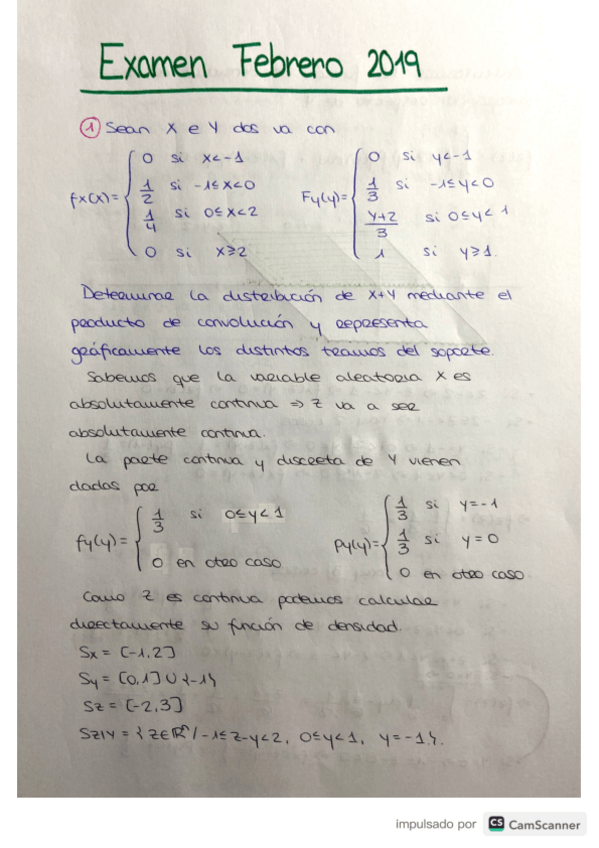 Examen Febrero 2019
① Sean X e Y dos va con
fx(x)= { 0 si x<-1
1/2 si -1≤x<0
1/4 si 0≤x<2
0 si x≥2
Fy(y)= { 0 si y<-1
1/3 si -1≤y<0
y+2/3 si 0≤y<1
1 si y≥1.
Determinar la distribución de X+Y mediante el
producto de convolución y representa
gráficamente los distintos tramos del soporte.
Sabemos que la variable aleatoria X es
absolutamente continua => Z va a ser
absolutamente continua.
La parte continua y discreta de Y vienen
dadas por
fy(y)= { 1/3 si 0≤y<1
0 en otro caso
Py(y)= { 1/3 si y=-1
1/3 si y=0
0 en otro caso
Como Z es continua podemos calcular
directamente su función de densidad.
Sx = [-1,2]
Sy = [0,1]∪{-1}
Sz = [-2,3]
Sz|Y = {z∈ℝ / -1≤z-y<2, 0≤y<1, y=-1}.
impulsado por CS CamScanner